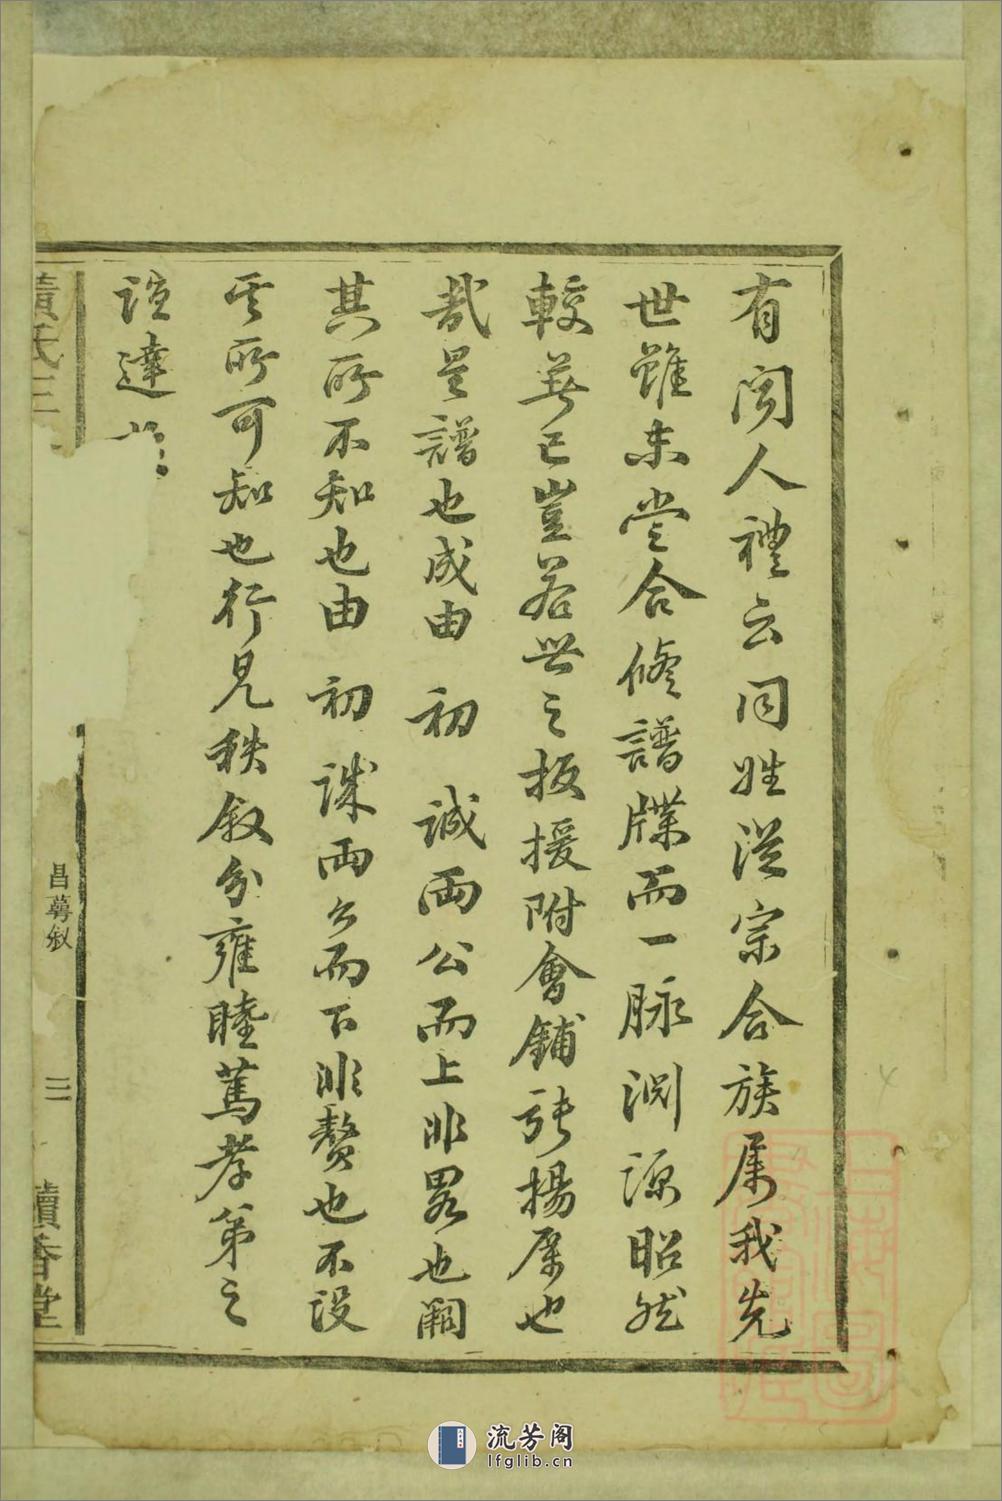 有闻人禮云同姓從宗合族属我先
世雖未尝合修譜牒而一脉渊源昭然
較著已豈若世之扳援附會鋪張揚厲也
哉是譜也成由 初 誠兩公而上非畧也闕
其所不知也由 初 誄兩公而下非贅也不設
其所可知也行見秩叙分雍睦篤孝弟之
誼達
黃氏三
昌蕚叙
三
讀香堂
流芳阁
lfglib.cn